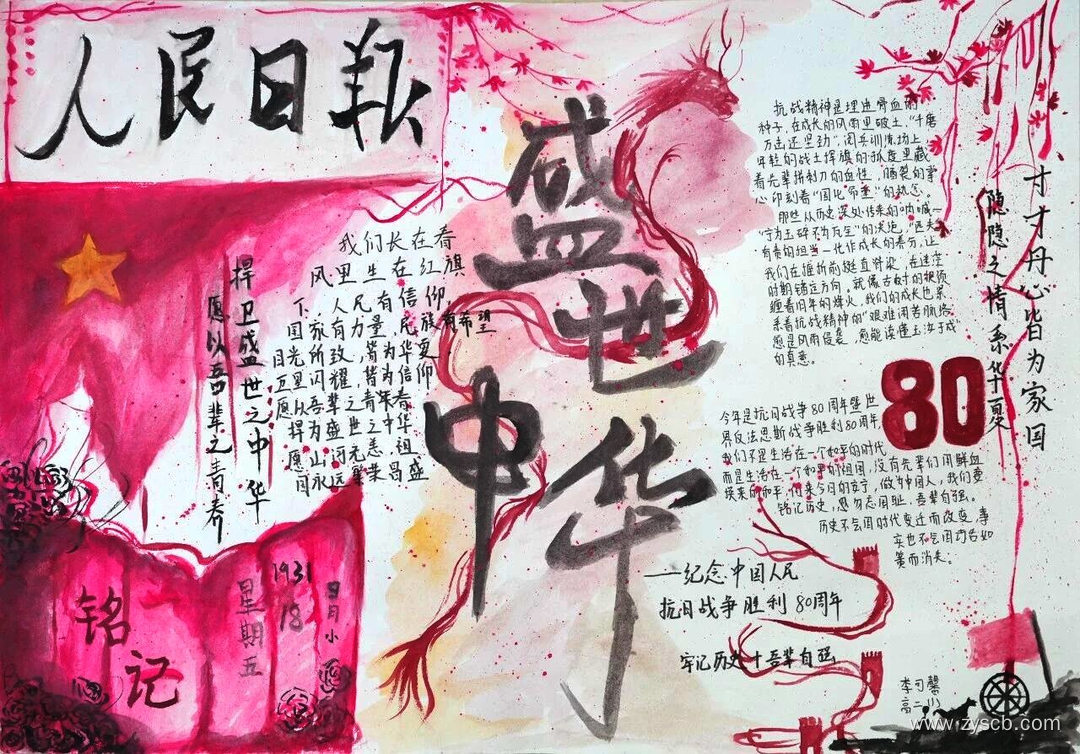 人民日报
盛世
中华
捍卫盛世之中华
愿以吾辈之青春
我们长在春
风里生在红旗
下
人民有信仰
国家有力量
民族有希望
目光所致皆为华夏
五星闪耀皆为信仰
愿以吾辈之青春
捍卫盛世之中华
愿山河无恙祖
国永远繁荣昌盛
抗战精神是埋进骨血的
种子,在成长的风雨里破土。“千磨
万击还坚劲”,阅兵训练场上
年轻的战士挥旗的弧度里藏
着先辈拼刺刀的血性,晒裂的掌
心印刻着“国比命重”的执念。
那些从历史深处传来的呐喊——
“宁为玉碎不为瓦全”的决绝,“匹夫
有责的担当一代作成长的养分,让
我们在挫折前挺直脊梁,在迷茫
时期锚定方向。就像古树的根须
缠着旧年的烽火,我们的成长也系
系着抗战精神的“艰难困苦脉络
愈是风雨侵袭,愈能读懂玉汝于成”
的真意。
寸寸丹心皆为家国
隐隐之情系华夏
80
今年是抗日战争80周年暨世
界反法思斯战争胜利80周年,
我们不是生活在一个和平的时代
而是生活在一个和平的祖国,没有先辈们用鲜血
换来的和平,何来今日的安宁,做为中国人,我们要
铭记历史,恩勿忘国耻,吾辈自强。
历史不会因时代变迁而改变,事
实也不会因巧舌如
簧而消失。
——纪念中国人民
抗日战争胜利80周年
牢记历史 吾辈自强
铭记
1931
18
星期五
日月小
李可馨
高二
www.zyscb.com